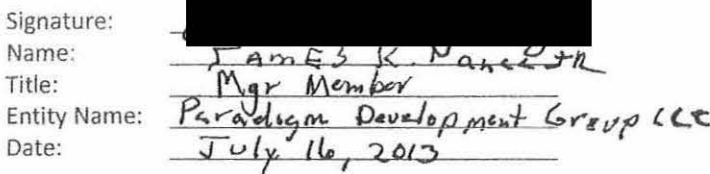 Signature:
Name: James K. JR
Title: Mgr Member
Entity Name: Paradigm Development Group LLC
Date: July 16, 2013